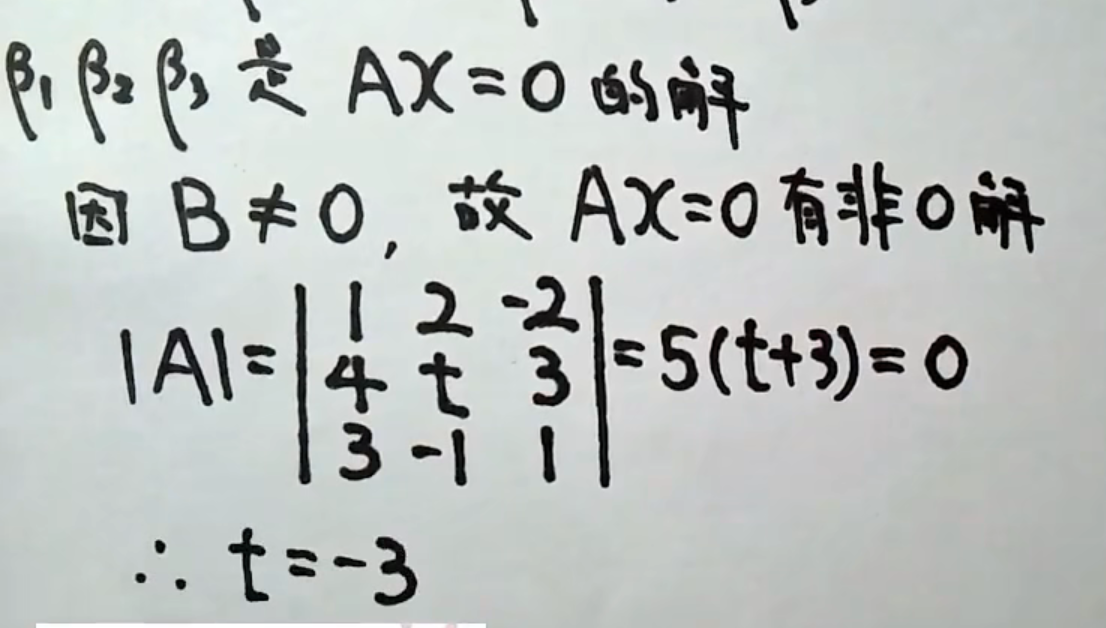 β₁ β₂ β₃ 是 AX=0 的解
因 B≠0, 故 AX=0 有非0解
|A|=|1 2 -2|
|4 t 3|=5(t+3)=0
|3 -1 1|
∴ t=-3